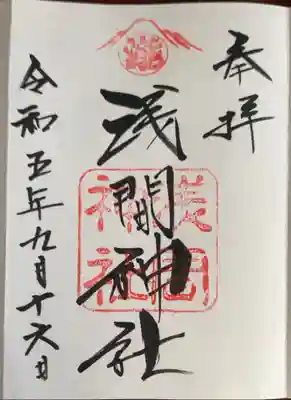 奉拝
浅間神社
令和五年九月十六日
浅間
神社